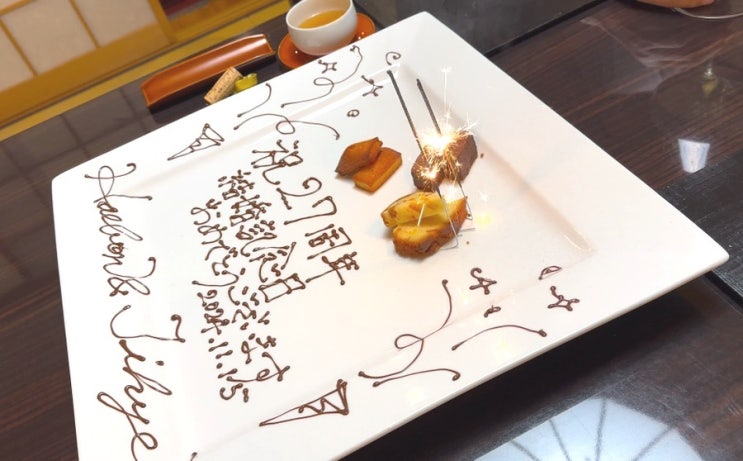 祝27周年
結婚記念日
おめでとうございます
2024.11.15
Haebon & Jihye